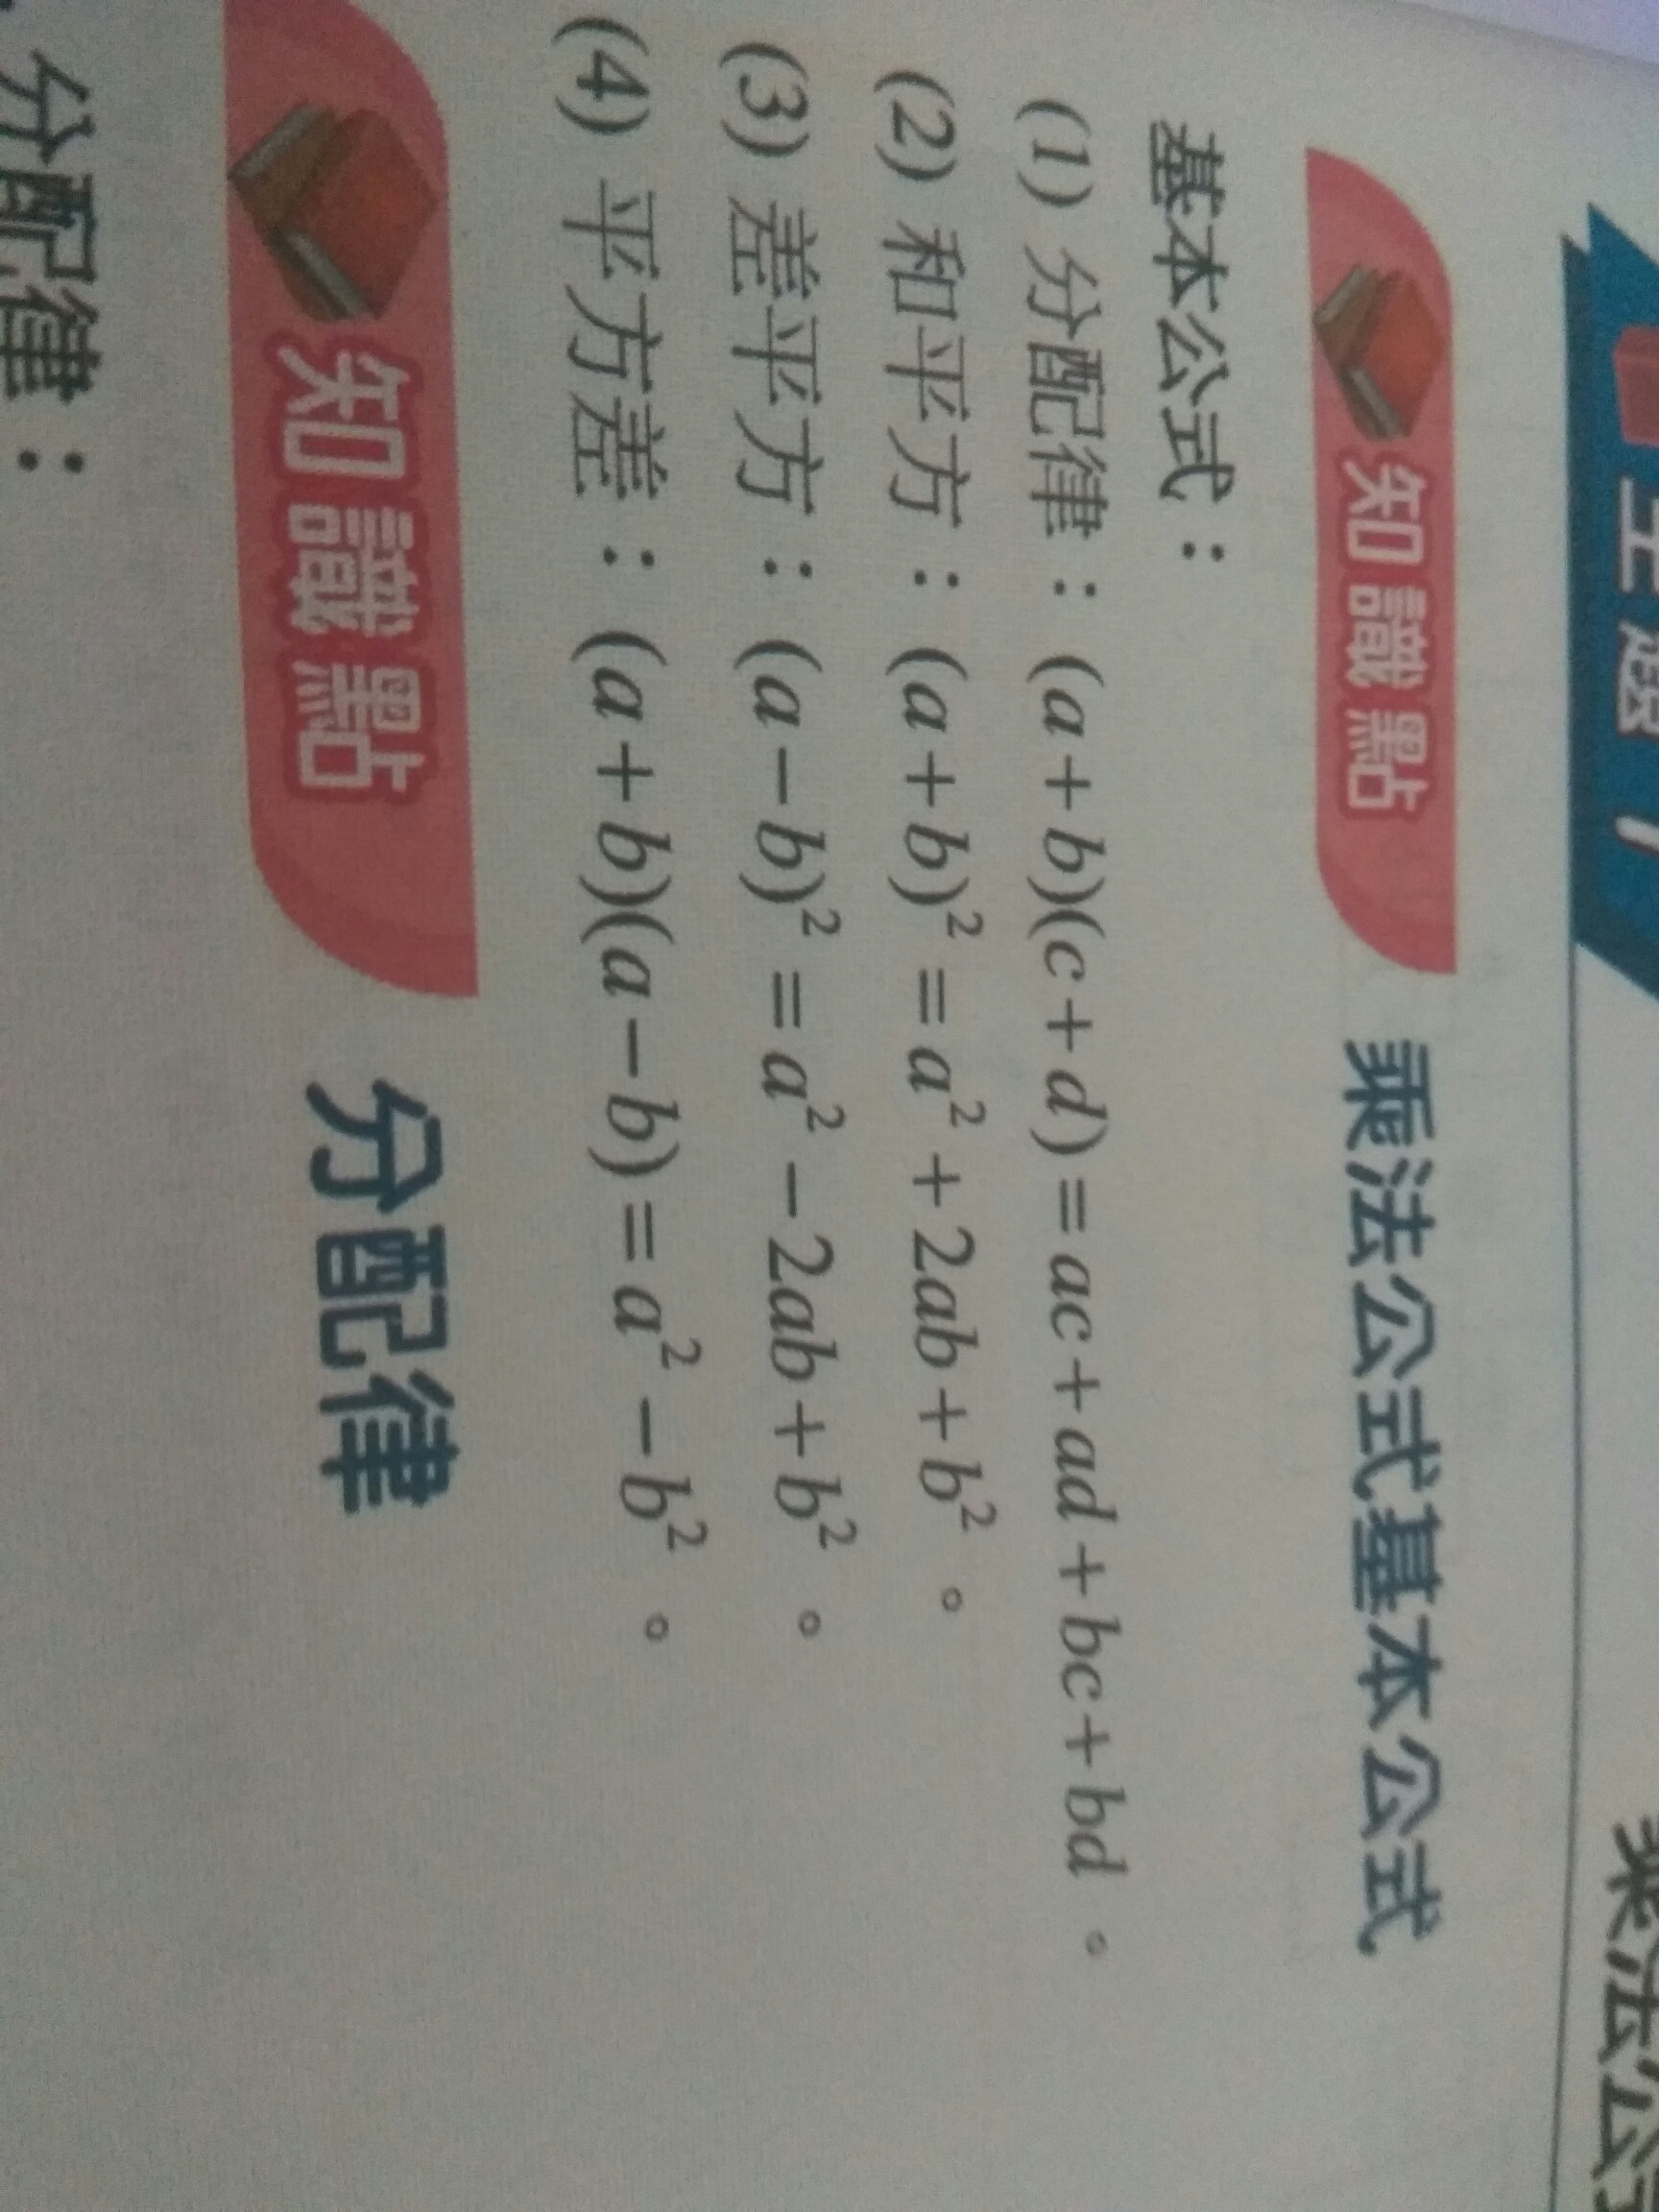 主題 1
乘法公式
知識點 乘法公式基本公式
基本公式：
(1) 分配律：(a+b)(c+d)=ac+ad+bc+bd。
(2) 和平方：(a+b)²=a²+2ab+b²。
(3) 差平方：(a-b)²=a²-2ab+b²。
(4) 平方差：(a+b)(a-b)=a²-b²。
知識點 分配律
分配律：